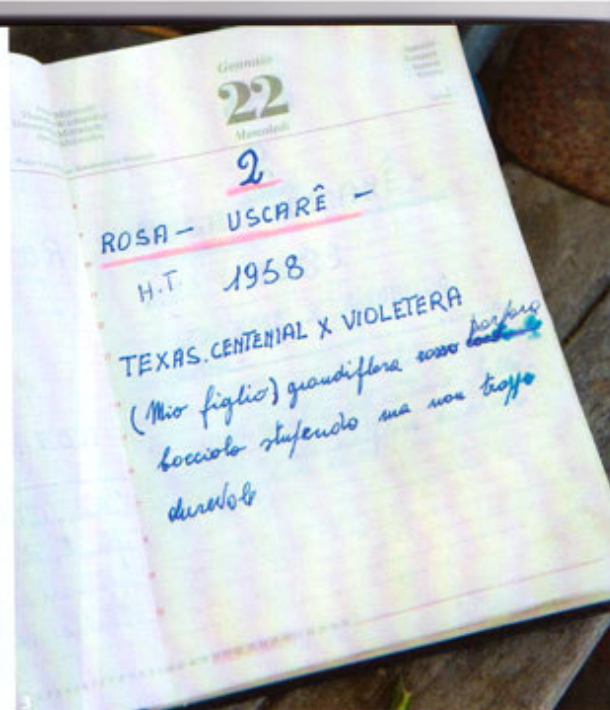 Gennaio
22
Mercoledì
2
ROSA - USCARÊ -
H.T 1958
TEXAS.CENTENIAL X VIOLETERA
(Mio figlio) grandiflora rosso porpora
bocciolo stupendo ma non troppo
durevole
3